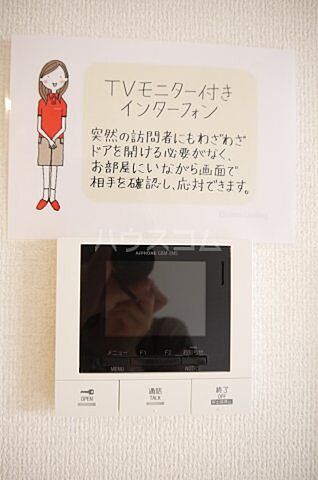 TVモニター付き
インターフォン
突然の訪問者にもわざわざ
ドアを開ける必要がなく、
お部屋にいながら画面で
相手を確認し、応対できます。
ハウスコム
AIPHONE
メニュー F1 F2 お知らせ
MENU NOTICE
OPEN
通話
TALK
終了
OFF